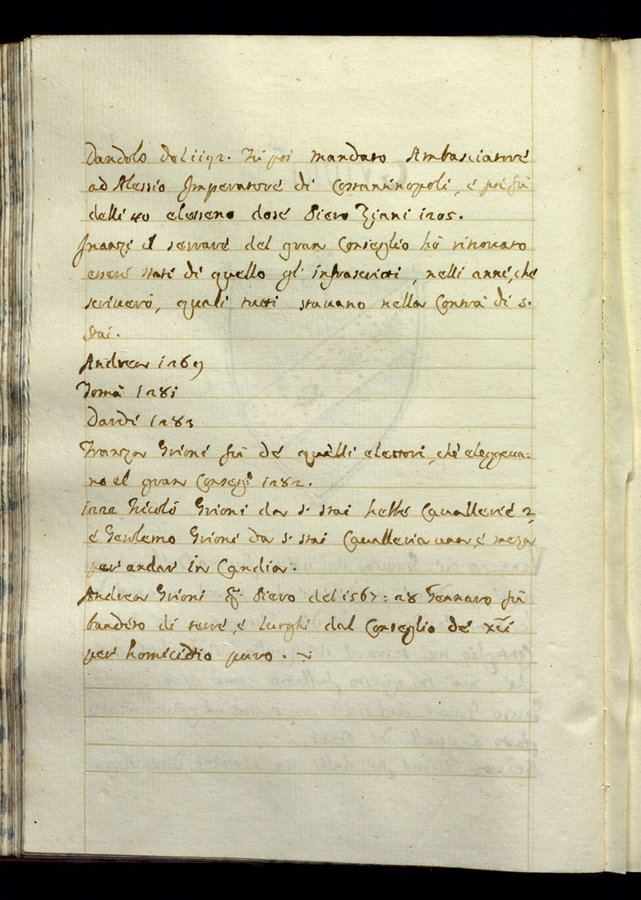 Dandolo del 1192. Fù poi mandato Ambasciatore
ad Alessio Imperatore di Costantinopoli, e poi fù
delli 40 elesseno dose Piero Ziani 1205.
Inanzi il serrare del gran Conseglio hò ritrovato
essere stati di quello gl' infrascritti, nelli anni, che
scriverò, quali tutti stavano nella Contrà di S.
Stai.
Andrea 1269
Tomà 1281
Dardi 1283
Franza Grioni fù de quelli elettori, che eleggeva-
no el gran Conseg.º 1282.
1222 Nicolò Grioni da S. Stai hebbe Cavallerie 2,
e Gerolemo Grioni da S. Stai Cavalleria una, e meza
per andar in Candia.
Andrea Grioni q. Piero del 1567: 28 Gennaro fù
bandito di terre, e luoghi dal Conseglio de XCi
per homicidio puro.